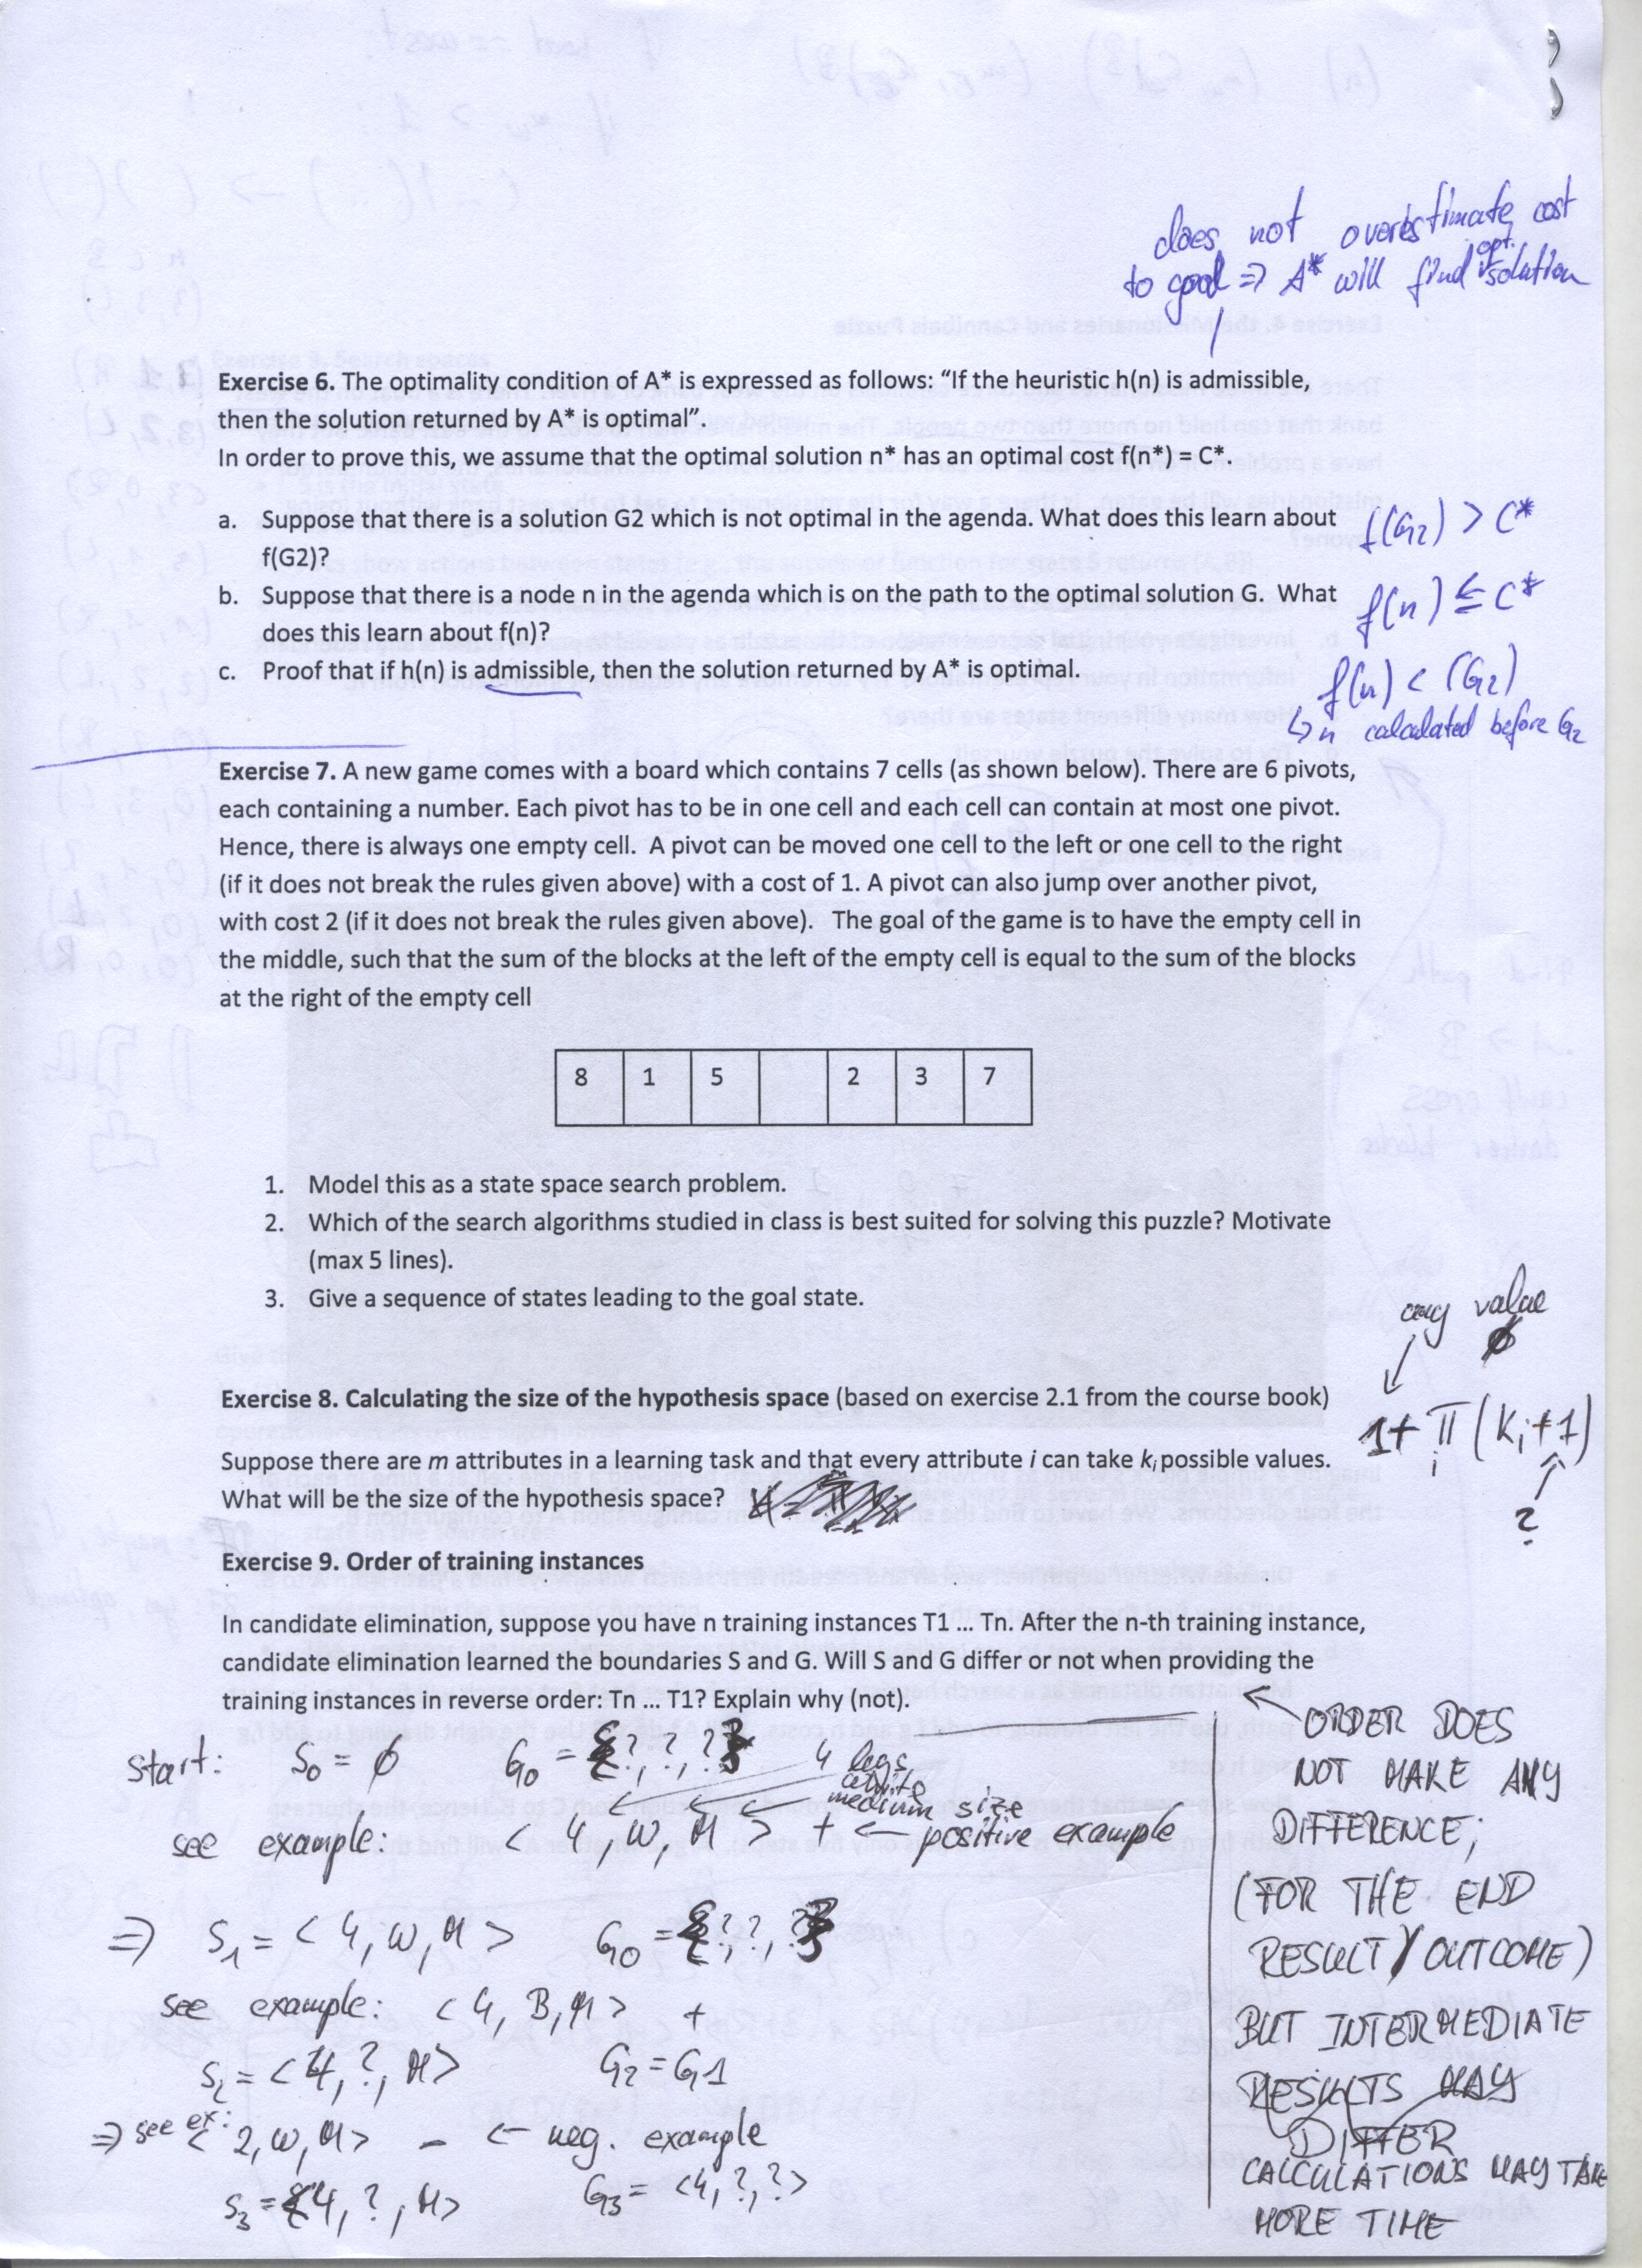 does not overestimate cost
to goal => A* will find opt. solution
Exercise 6. The optimality condition of A* is expressed as follows: “If the heuristic h(n) is admissible,
then the solution returned by A* is optimal”.
In order to prove this, we assume that the optimal solution n* has an optimal cost f(n*) = C*.
a. Suppose that there is a solution G2 which is not optimal in the agenda. What does this learn about
f(G2)?
f(G2) > C*
b. Suppose that there is a node n in the agenda which is on the path to the optimal solution G. What
does this learn about f(n)?
f(n) ≤ C*
c. Proof that if h(n) is admissible, then the solution returned by A* is optimal.
f(n) < (G2)
↳ n calculated before G2
Exercise 7. A new game comes with a board which contains 7 cells (as shown below). There are 6 pivots,
each containing a number. Each pivot has to be in one cell and each cell can contain at most one pivot.
Hence, there is always one empty cell. A pivot can be moved one cell to the left or one cell to the right
(if it does not break the rules given above) with a cost of 1. A pivot can also jump over another pivot,
with cost 2 (if it does not break the rules given above). The goal of the game is to have the empty cell in
the middle, such that the sum of the blocks at the left of the empty cell is equal to the sum of the blocks
at the right of the empty cell
8 1 5 2 3 7
1. Model this as a state space search problem.
2. Which of the search algorithms studied in class is best suited for solving this puzzle? Motivate
(max 5 lines).
3. Give a sequence of states leading to the goal state.
any value
ϕ
Exercise 8. Calculating the size of the hypothesis space (based on exercise 2.1 from the course book)
1+ Π (ki+1)
i
?
Suppose there are m attributes in a learning task and that every attribute i can take ki possible values.
What will be the size of the hypothesis space?
Exercise 9. Order of training instances
In candidate elimination, suppose you have n training instances T1 ... Tn. After the n-th training instance,
candidate elimination learned the boundaries S and G. Will S and G differ or not when providing the
training instances in reverse order: Tn ... T1? Explain why (not).
start: S0 = ϕ G0 = {?, ?, ?}
4 legs
white
medium size
see example: < 4, W, M > + ← positive example
=> S1 = < 4, W, M > G0 = {?, ?, ?}
see example: < 4, B, M > +
S2 = < 4, ?, M > G2 = G1
=> see ex: < 2, W, M > - ← neg. example
S3 = < 4, ?, M > G3 = <4, ?, ?>
← ORDER DOES
NOT MAKE ANY
DIFFERENCE;
(FOR THE END
RESULT/OUTCOME)
BUT INTERMEDIATE
RESULTS MAY
DIFFER
CALCULATIONS MAY TAKE
MORE TIME